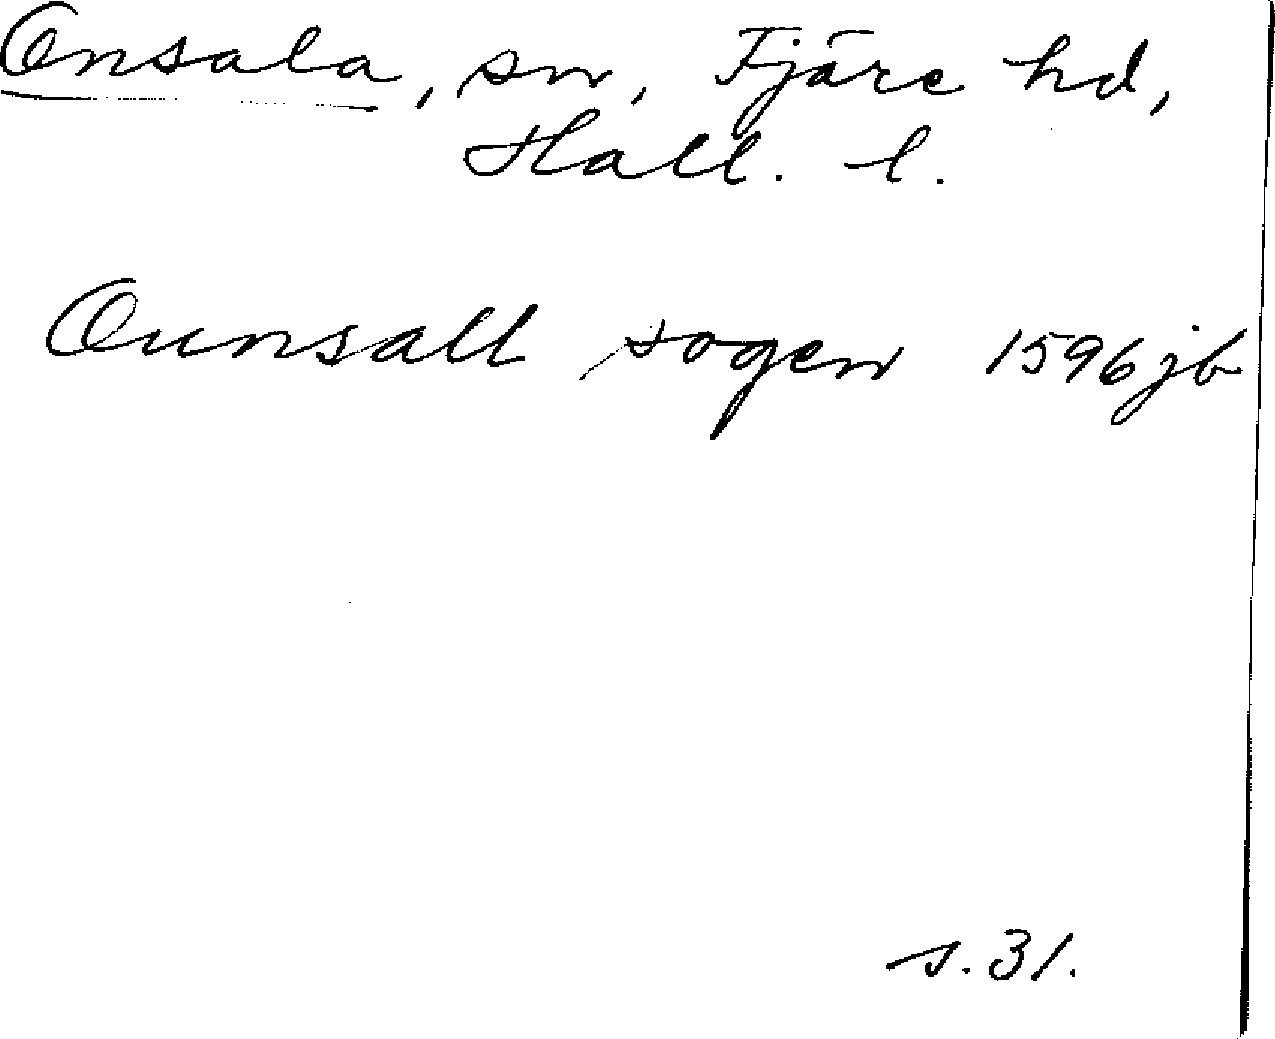 Onsala, sn, Fjäre hd,
Hall. l.
Ounsall sogen 1596 jb
s. 31.